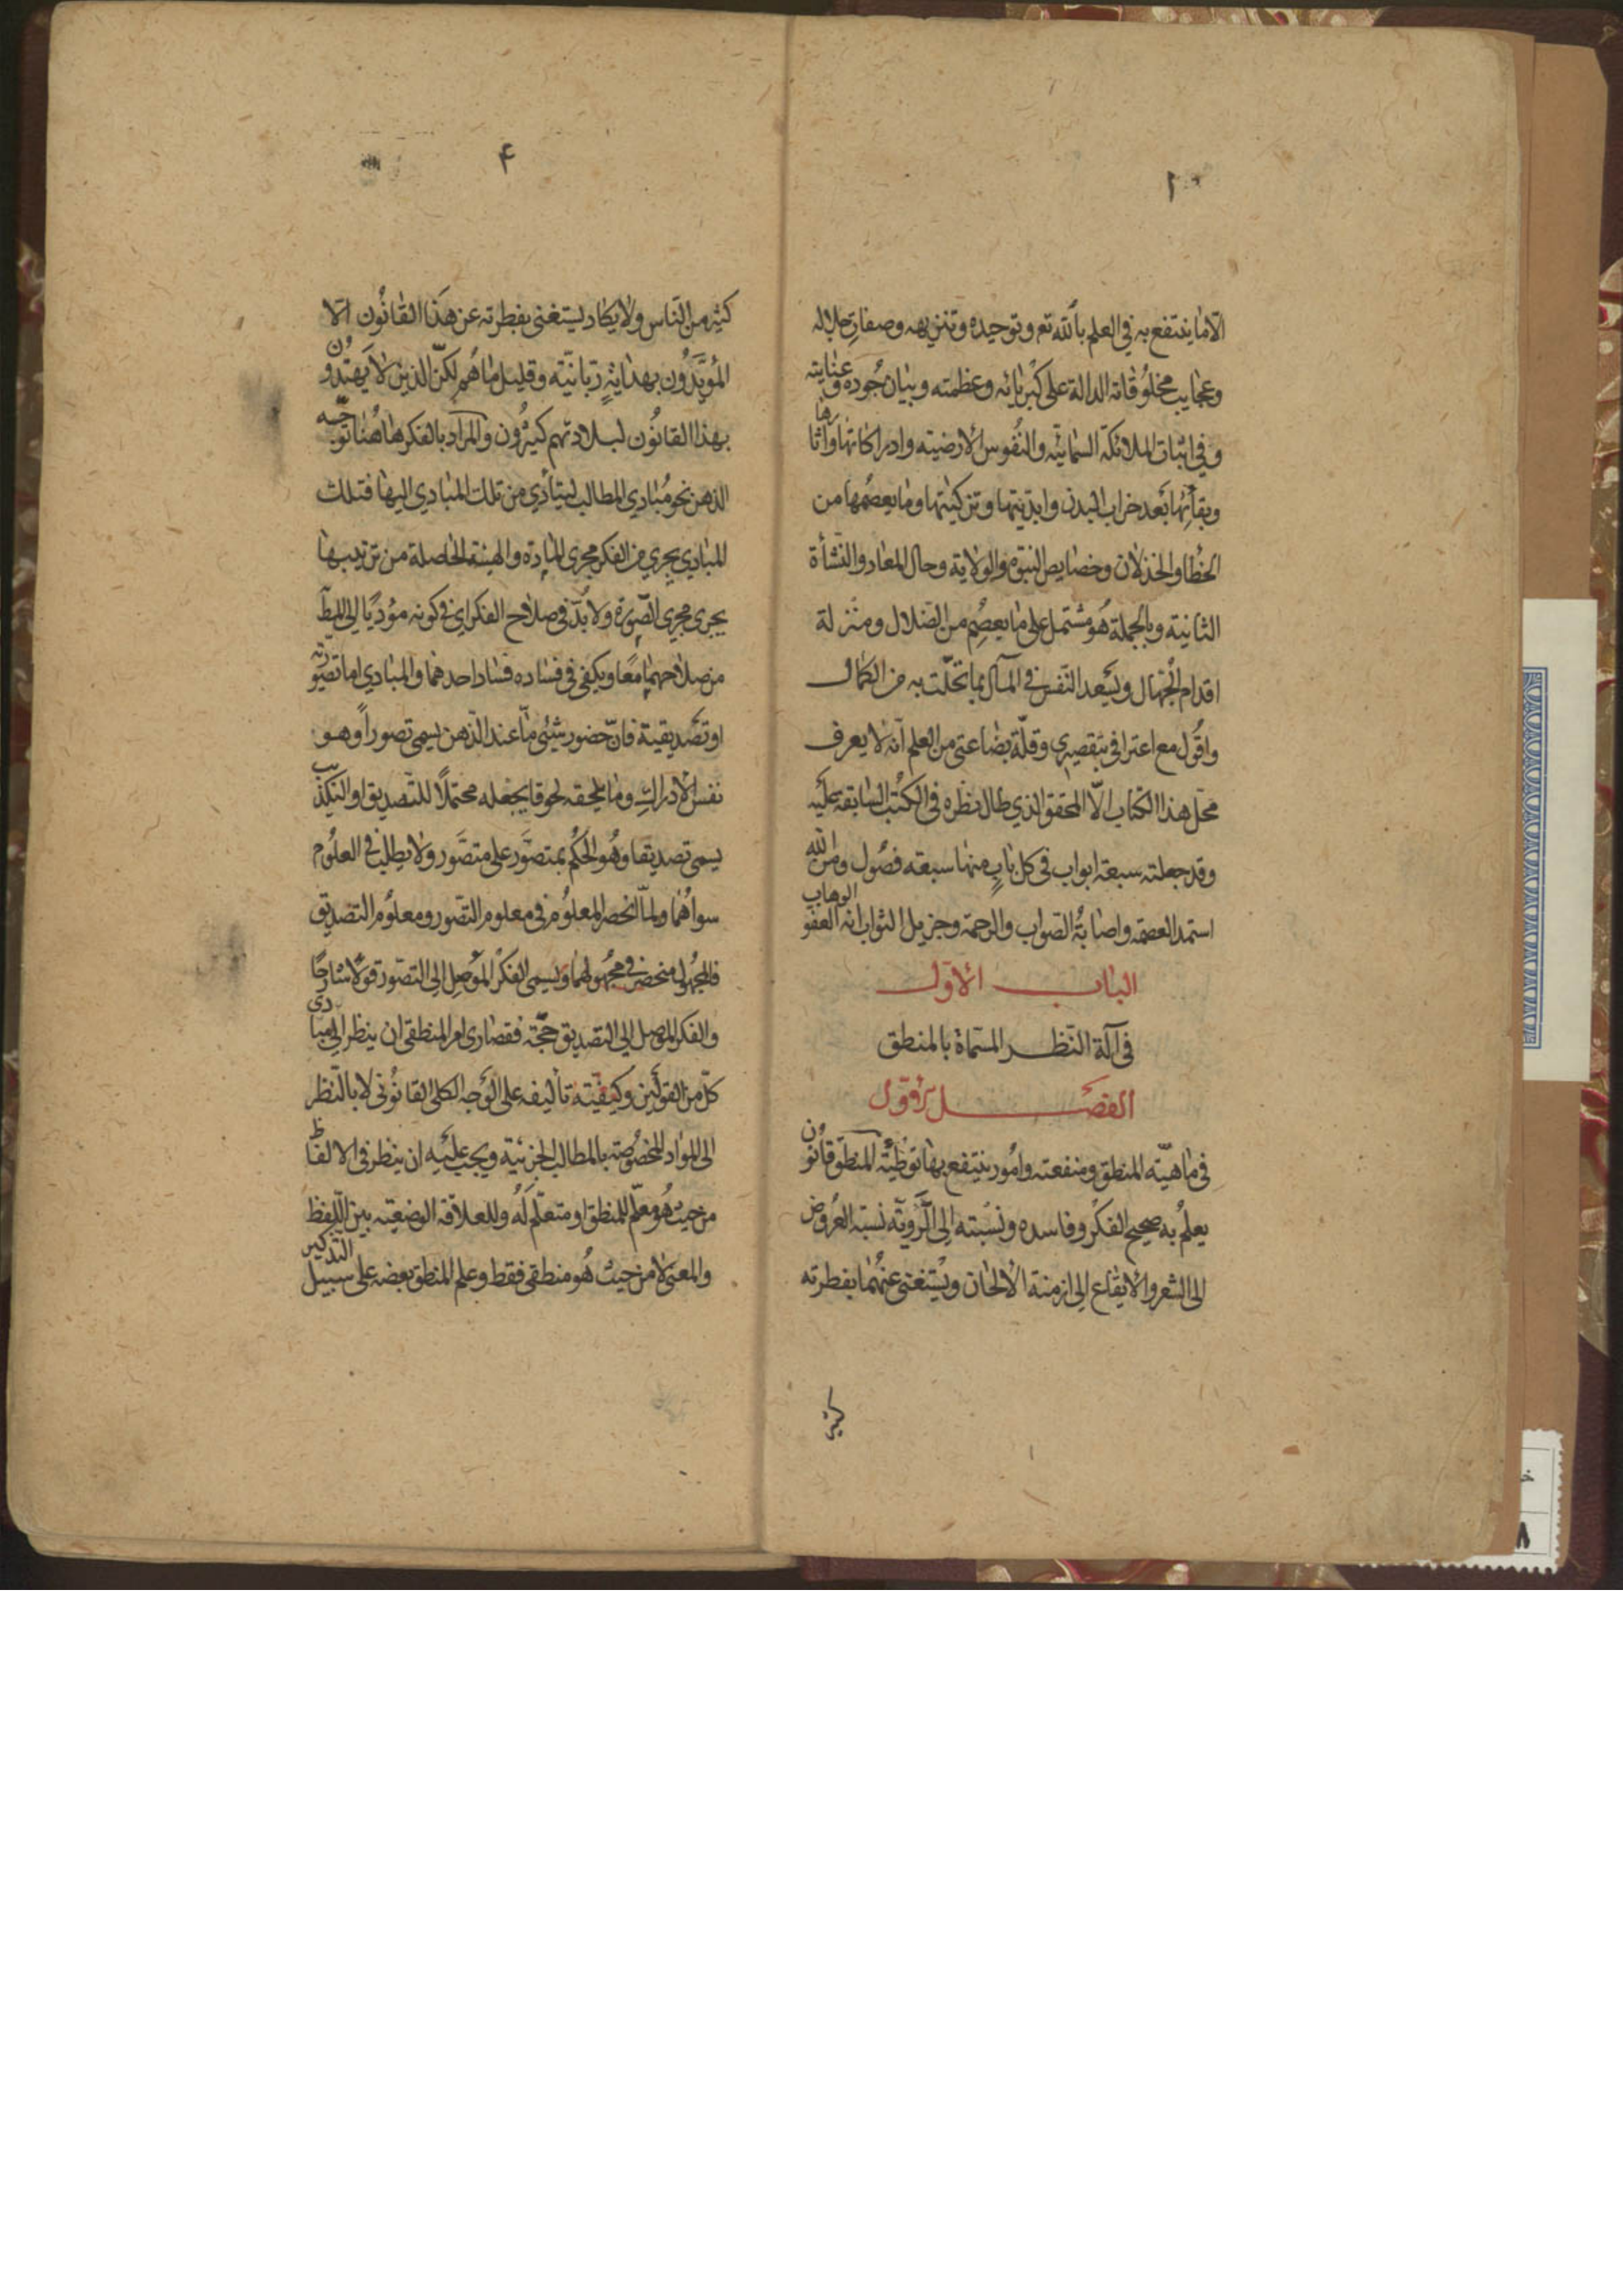 ١
الا ما ينتفع به في العلم بالله تع وتوحيده وتنزيهه وصفات جلاله
وعجايب مخلوقاته الدالة على كبريائه وعظمته وبيان جوده وعنايته
وفي اثبات الملائكة السمائية والنفوس الارضيته وادراكاتها وآثارها
وبقائها بعد خراب البدن وابديتها وتزكيتها وما يعصمها من
الخطا والخذلان وخصايص النبوة والولاية وحال المعاد والنشأة
الثانيته وبالجملة هو مشتمل على ما يعصم من الضلال ومنزلة
اقدام الجهال ويسعد النفس في المآل بما تحلت به من الكمال
واقول مع اعترافي بتقصيري وقلة بضاعتي من العلم انه لا يعرف
محل هذا الكتاب الا المحقق الذي طال نظره في الكتب السابقة عليه
وقد جعلته سبعة ابواب في كل باب منها سبعه فصول ومن الله
استمد العصمة واصابة الصواب والرحمة وجزيل الثواب انه العفو الوهاب
الباب الاول
في آلة النظر المسماة بالمنطق
الفصل الاول
في ماهية المنطق ومنفعته وامور ينتفع بها توطئة المنطق قانون
يعلم به صحيح الفكر وفاسده ونسبته الى الروية نسبة العروض
الى الشعر والايقاع الى ازمنة الالحان ويستغنى عنهما بفطرته
كثير
۴
كثير من الناس ولا يكاد يستغنى بفطرته عن هذا القانون الا
المؤيدون بهداية ربانية وقليل ما هم لكن الذين لا يهتدون
بهذا القانون لبلادتهم كثيرون والمراد بالفكر هاهنا توجه
الذهن نحو مبادي المطالب ليتأدي من تلك المبادي اليها فتلك
المبادي يجري من الفكر مجرى المادة والهيئة الحاصلة من ترتيبها
يجرى مجرى الصورة ولا بد في صلاح الفكر اى في كونه مؤديا الى المط
من صلاحهما معا ويكفى في فساده فساد احدهما والمبادي اما تصورته
او تصديقية فان حضور شئ ما عند الذهن يسمى تصورا وهو
نفس الادراك وما يلحقه لحوقا يجعله محتملا للتصديق او التكذيب
يسمى تصديقا وهو الحكم بمتصور على متصور ولا يطلب في العلوم
سواهما ولما انحصر المعلوم في معلوم التصور ومعلوم التصديق
فالمجهول منحصر في مجهولهما ويسمى الفكر الموصل الى التصور قولا شارحا
والفكر الموصل الى التصديق حجة فقصارى امر المنطقي ان ينظر الى مبادي
كل من القولين وكيفية تأليفه على الوجه الكلى القانوني لا بالنظر
الى المواد المخصوصة بالمطالب الجزئية ويجب عليه ان ينظر في الالفاظ
من حيث هو معلم للمنطق او متعلم له وللعلاقة الوضعية بين اللفظ
والمعنى لا من حيث هو منطقى فقط وعلم المنطق بعضه على سبيل التذكير